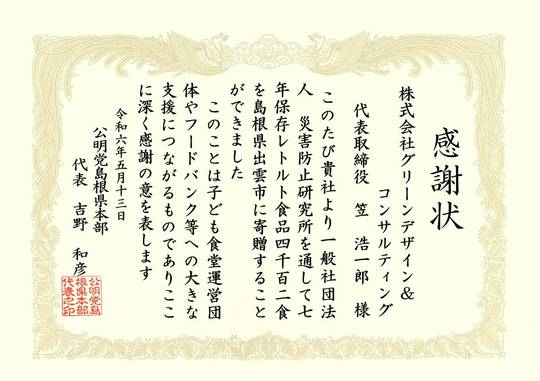 感謝状
株式会社グリーンデザイン&
コンサルティング
代表取締役 笠 浩一郎 様
このたび貴社より一般社団法
人 災害防止研究所を通して七
年保存レトルト食品四千百二食
を島根県出雲市に寄贈すること
ができました
このことは子ども食堂運営団
体やフードバンク等への大きな
支援につながるものでありここ
に深く感謝の意を表します
令和六年五月十三日
公明党島根県本部
代表 吉野 和彦
公明党島
根県本部
代表之印